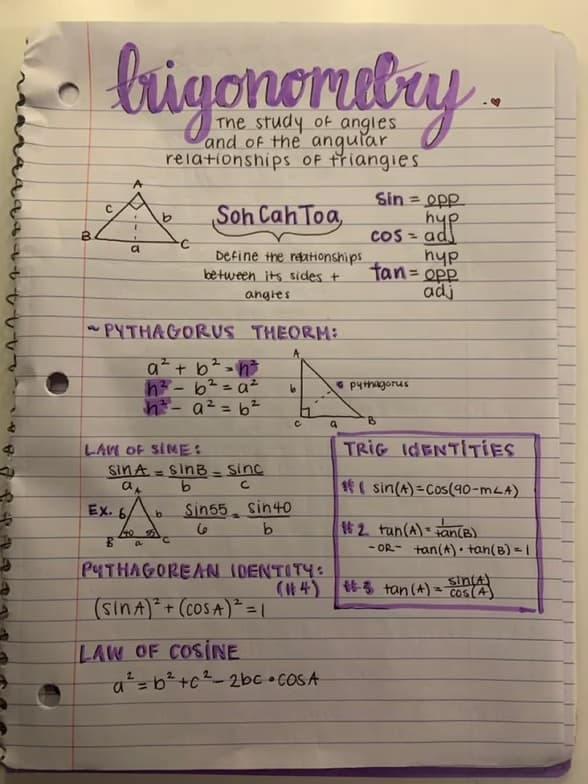 trigonometry
The study of angles
and of the angular
relationships of triangles
A
c b
B a C
Soh Cah Toa
Define the relationships
between its sides +
angles
sin = opp
hyp
cos = adj
hyp
tan = opp
adj
~ PYTHAGORUS THEORM:
a² + b² = h²
h² - b² = a²
h² - a² = b²
A
b pythagorus
C a B
LAW OF SINE:
sinA = sinB = sinc
a b c
Ex. 6 A b
B 40 55 C
a
sin55 = sin40
6 b
TRIG IDENTITIES
#1 sin(A) = cos(90-m∠A)
#2 tan(A) = 1/tan(B)
-OR- tan(A) · tan(B) = 1
#3 tan(A) = sin(A)/cos(A)
PYTHAGOREAN IDENTITY:
(#4)
(sinA)² + (cosA)² = 1
LAW OF COSINE
a² = b² + c² - 2bc • cosA